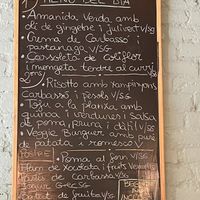 MENÚ DEL DIA
• Amanida Verda amb
oli de gingebre i julivert V/SG
• Crema de Carbassó i
pastanaga V/SG
• Cassoleta de Coliflor
i menjeta tendre al curri
V/SG
2ons
• Risotto amb xampinyons
Carbassó i pèsols V/SG
• Tofu a la planxa amb
quinoa i verdures i Salsa
de poma, pruna i dàtil V/SG
• Veggie Burguer amb puré
de patata i romesco V
POSTRES
• Poma al forn V/SG
Flam de Xocolata i fruits Vermells
Pastís de Carbassa
Iogurt Grec SG
de fruita V/SG